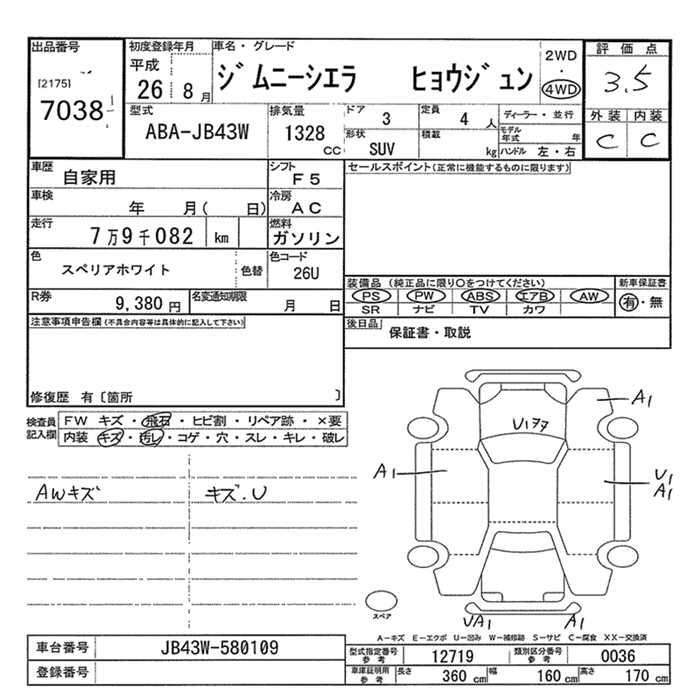 出品番号
[2175]
7038
初度登録年月
平成
26 8 月
車名・グレード
ジムニーシエラ ヒョウジュン
2WD
・
4WD
評価点
3.5
外装 内装
C C
型式
ABA-JB43W
排気量
1328
CC
ドア 3
定員 4 人
形状 SUV
積載 kg
ディーラー・並行
モデル年式 年
ハンドル 左・右
車歴 自家用
シフト F5
車検 年 月( 日)
冷房 AC
走行 7万9千082 km
燃料 ガソリン
色 スペリアホワイト 色替
色コード 26U
R券 9,380 円
名変通知期限 月 日
セールスポイント(正常に機能するものに限ります)
装備品 (純正品に限り○をつけてください)
PS PW ABS エアB AW
SR ナビ TV カワ
新車保証書
有・無
後日品 保証書・取説
注意事項申告欄(不具合内容等は具体的に記入して下さい)
修復歴 有〔箇所 〕
検査員記入欄
FW キズ・飛石・ヒビ割・リペア跡・×要
内装 キズ・汚レ・コゲ・穴・スレ・キレ・破レ
AWキズ
キズ.U
A1
U1
A1
A1
UA1
A1
スペア
A-キズ E-エクボ U-凹み W-補修跡 S-サビ C-腐食 XX-交換済
車台番号 JB43W-580109
登録番号
型式指定番号参考 12719
類別区分番号参考 0036
車庫証明用参考 長さ 360 cm 幅 160 cm 高さ 170 cm